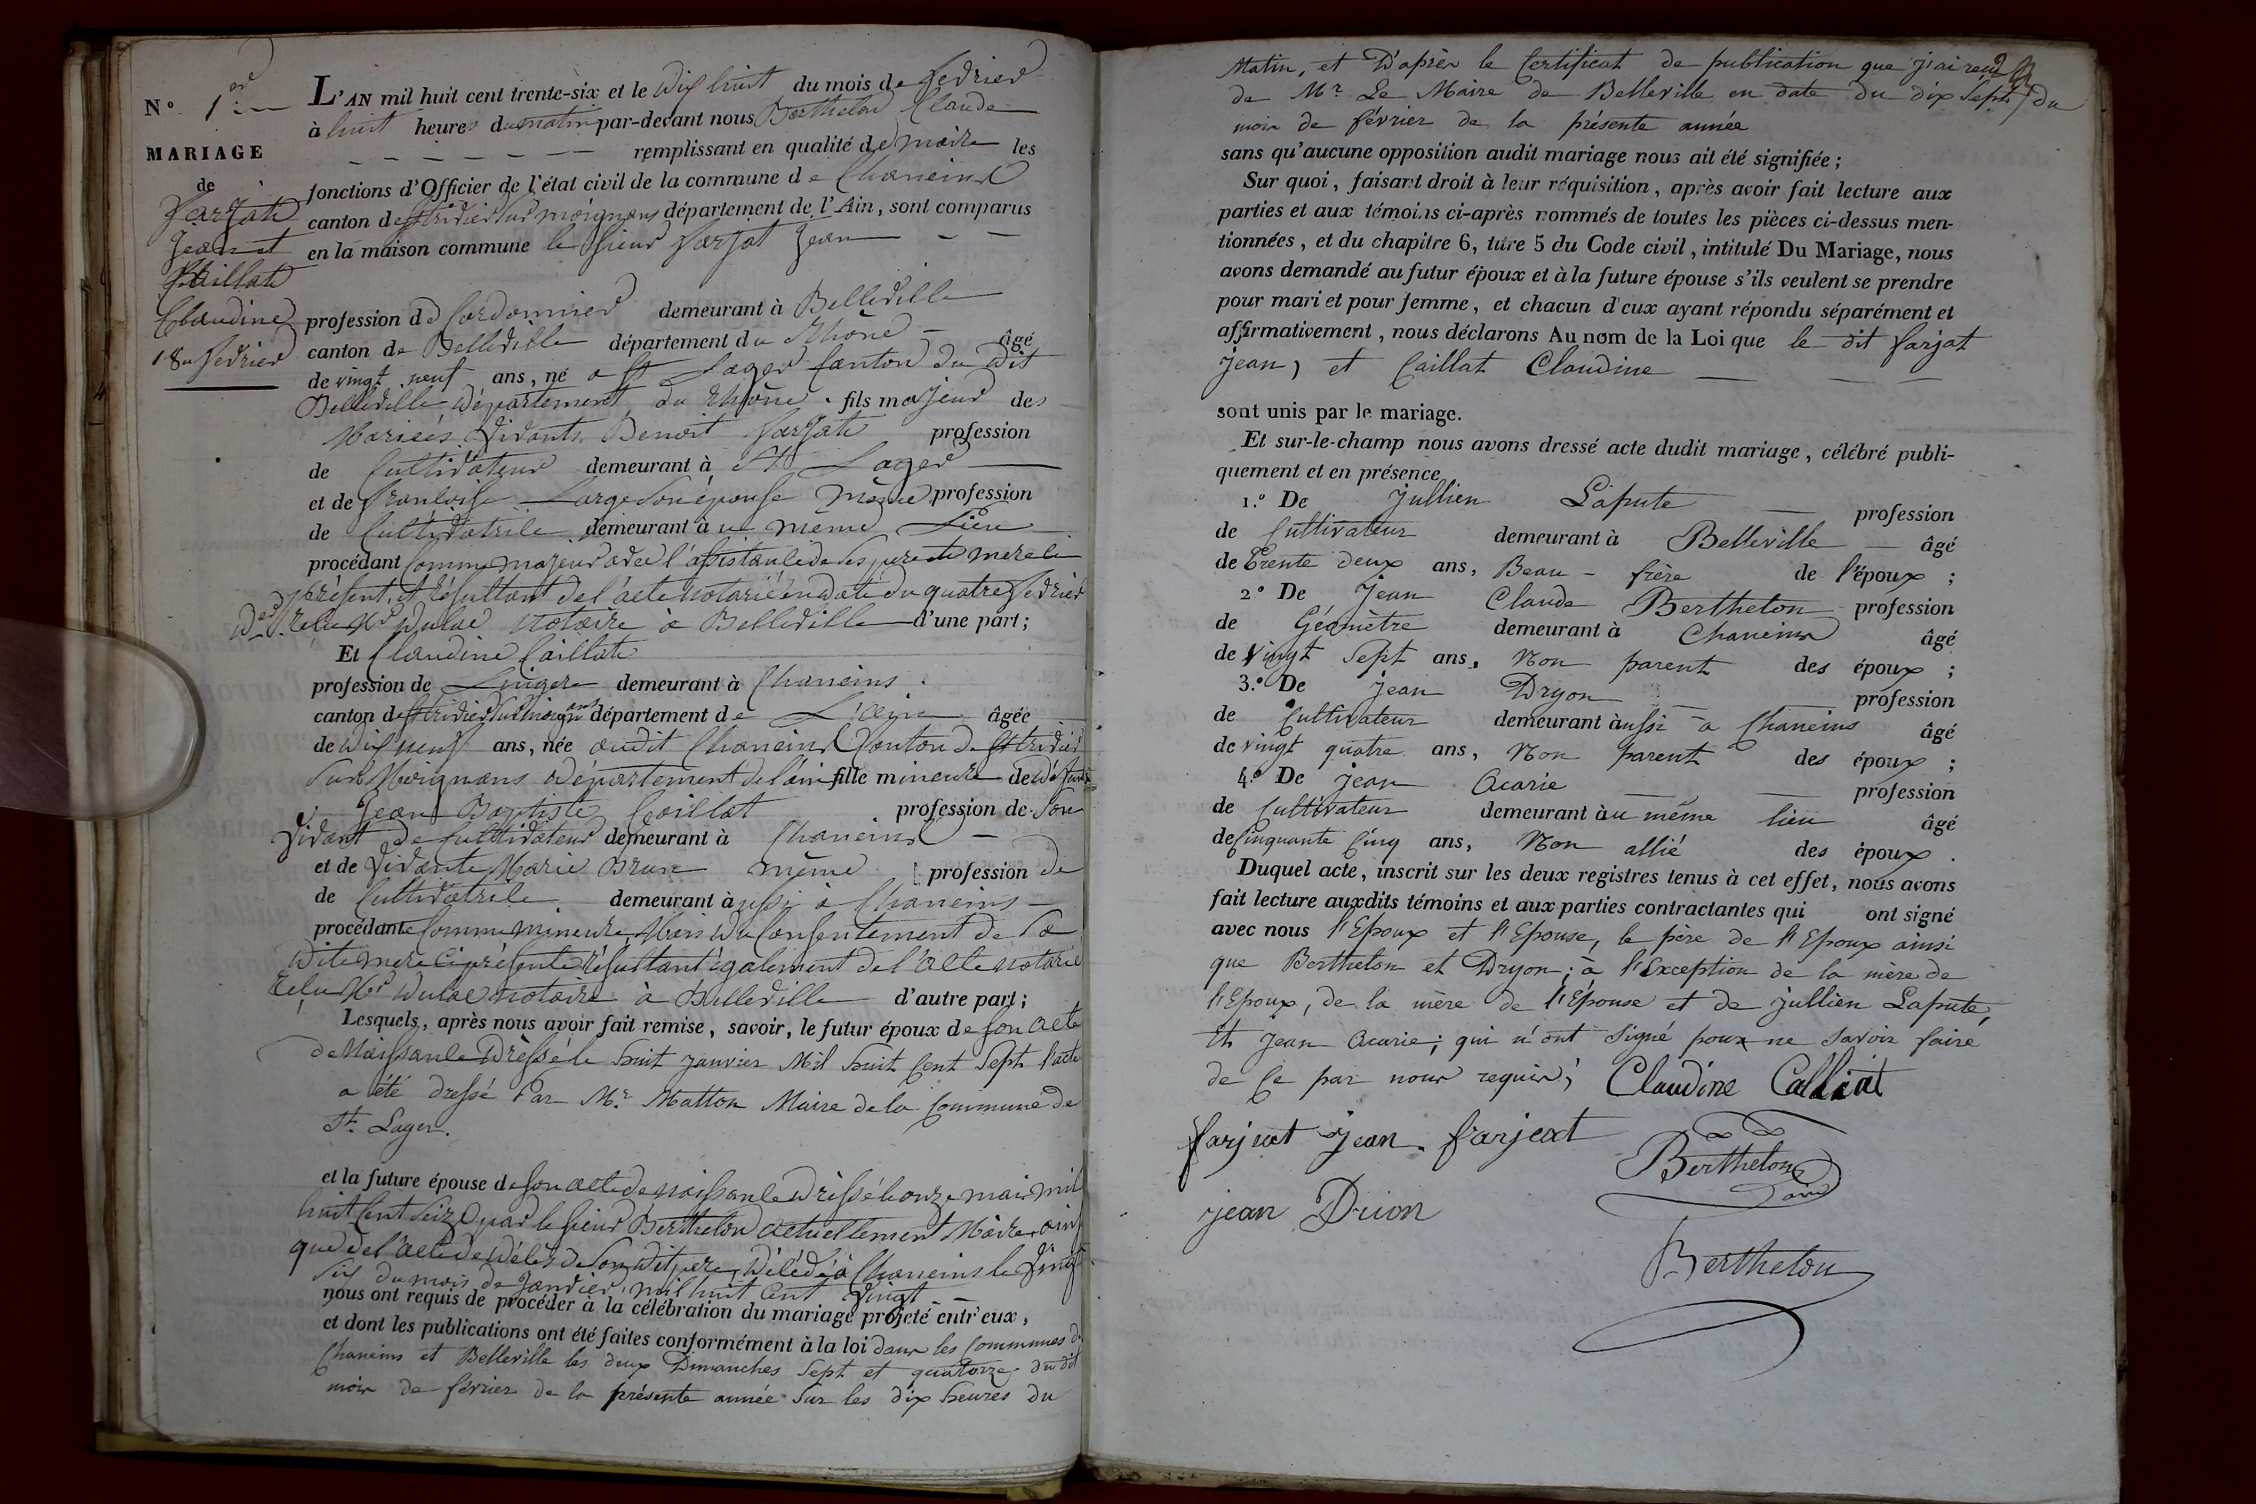 N.º 1er
MARIAGE
de
Farjat
Jean et
Caillat
Claudine
18 fevrier
L'AN mil huit cent trente-six et le dix huit du mois de fevrier
à huit heures du matin par-devant nous Berthelon Claude
remplissant en qualité de maire les
fonctions d'Officier de l'état civil de la commune de Chaneins
canton de St tridier sur moignans département de l'Ain, sont comparus
en la maison commune le sieur farjat Jean
profession de Cordonnier demeurant à Belleville
canton de Belleville département du Rhône âgé
de vingt neuf ans, né a St Lager Canton du dit
Belleville département du Rhône. fils majeur des
Mariés vivants Benoit farjat profession
de Cultivateur demeurant à St Lager
et de francoise Large Son épouse même profession
de Cultivatrice demeurant à u même Lieu
procédant Comme majeur avec l'assistance de ses pere et mere ci
présent, et résultant de l'acte notarié en date du quatre fevrier
recu Mr Dulac notaire à Belleville d'une part;
Et Claudine Caillat
profession de Lingere demeurant à Chaneins
canton de St tridier sur moignans département de L'ain âgée
de dix neuf ans, née audit Chaneins Canton de St tridier
sur Moignans département de l'ain fille mineure de défunt
Jean Baptiste Caillat profession de Son
vivant de Cultivateur demeurant à Chaneins
et de vivante Marie Brun même profession de
de Cultivatrice demeurant à ussi à Chaneins
procédante Comme mineure Mais du Consentement de Sa
dite mere ci présente résultant également de l'acte notarié
recu Mr Dulac notaire à Belleville d'autre part;
Lesquels, après nous avoir fait remise, savoir, le futur époux de son acte
de Naissance dréssé le huit janvier Mil huit Cent Sept l'acte
a été dressé Par Mr. Matton Maire de la Commune de
St. Lager.
et la future épouse de son acte de naissance dréssé le onze mai mil
huit Cent Seize par le sieur Berthelon actuellement Maire ainsi
que de l'acte de décès de Son dit pere, décédé à Chaneins le vingt
Six du mois de Janvier mil huit Cent vingt
nous ont requis de procéder à la célébration du mariage projeté entr'eux,
et dont les publications ont été faites conformément à la loi dans les Communes de
Chaneins et Belleville les deux Dimanches Sept et quatorze du dit
mois de février de la présente année Sur les dix heures du
Matin, et D'après le Certificat de publication que j'ai recu
de Mr. Le Maire de Belleville en date du dix Sept du
mois de février de la présente année
sans qu'aucune opposition audit mariage nous ait été signifiée;
Sur quoi, faisant droit à leur réquisition, après avoir fait lecture aux
parties et aux témoins ci-après nommés de toutes les pièces ci-dessus men-
tionnées, et du chapitre 6, titre 5 du Code civil, intitulé Du Mariage, nous
avons demandé au futur époux et à la future épouse s'ils veulent se prendre
pour mari et pour femme, et chacun d'eux ayant répondu séparément et
affirmativement, nous déclarons Au nom de la Loi que le dit farjat
Jean, et Caillat Claudine
sont unis par le mariage.
Et sur-le-champ nous avons dressé acte dudit mariage, célébré publi-
quement et en présence
1.º De Jullien Lapute profession
de Cultivateur demeurant à Belleville âgé
de Trente deux ans, Beau-frère de l'époux;
2º De Jean Claude Berthelon profession
de Géomètre demeurant à Chaneins âgé
de Vingt Sept ans, Non parent des époux;
3.º De Jean Dryon profession
de Cultivateur demeurant àussi a Chaneins âgé
de vingt quatre ans, Non parent des époux;
4.º De Jean Acarie profession
de Cultivateur demeurant àu même lieu âgé
de Cinquante Cinq ans, Non allié des époux.
Duquel acte, inscrit sur les deux registres tenus à cet effet, nous avons
fait lecture auxdits témoins et aux parties contractantes qui ont signé
avec nous l'Epoux et l'Epouse, le père de l'Epoux ainsi
que Berthelon et Dryon; à l'Exception de la mère de
l'Epoux, de la mère de l'Epouse et de Jullien Lapute,
Et Jean Acarie; qui n'ont signé pour ne savoir faire
de Ce par nous requis; Claudine Calliat
farjeat jean. farjeat
Berthelon
jean Drion
Berthelon